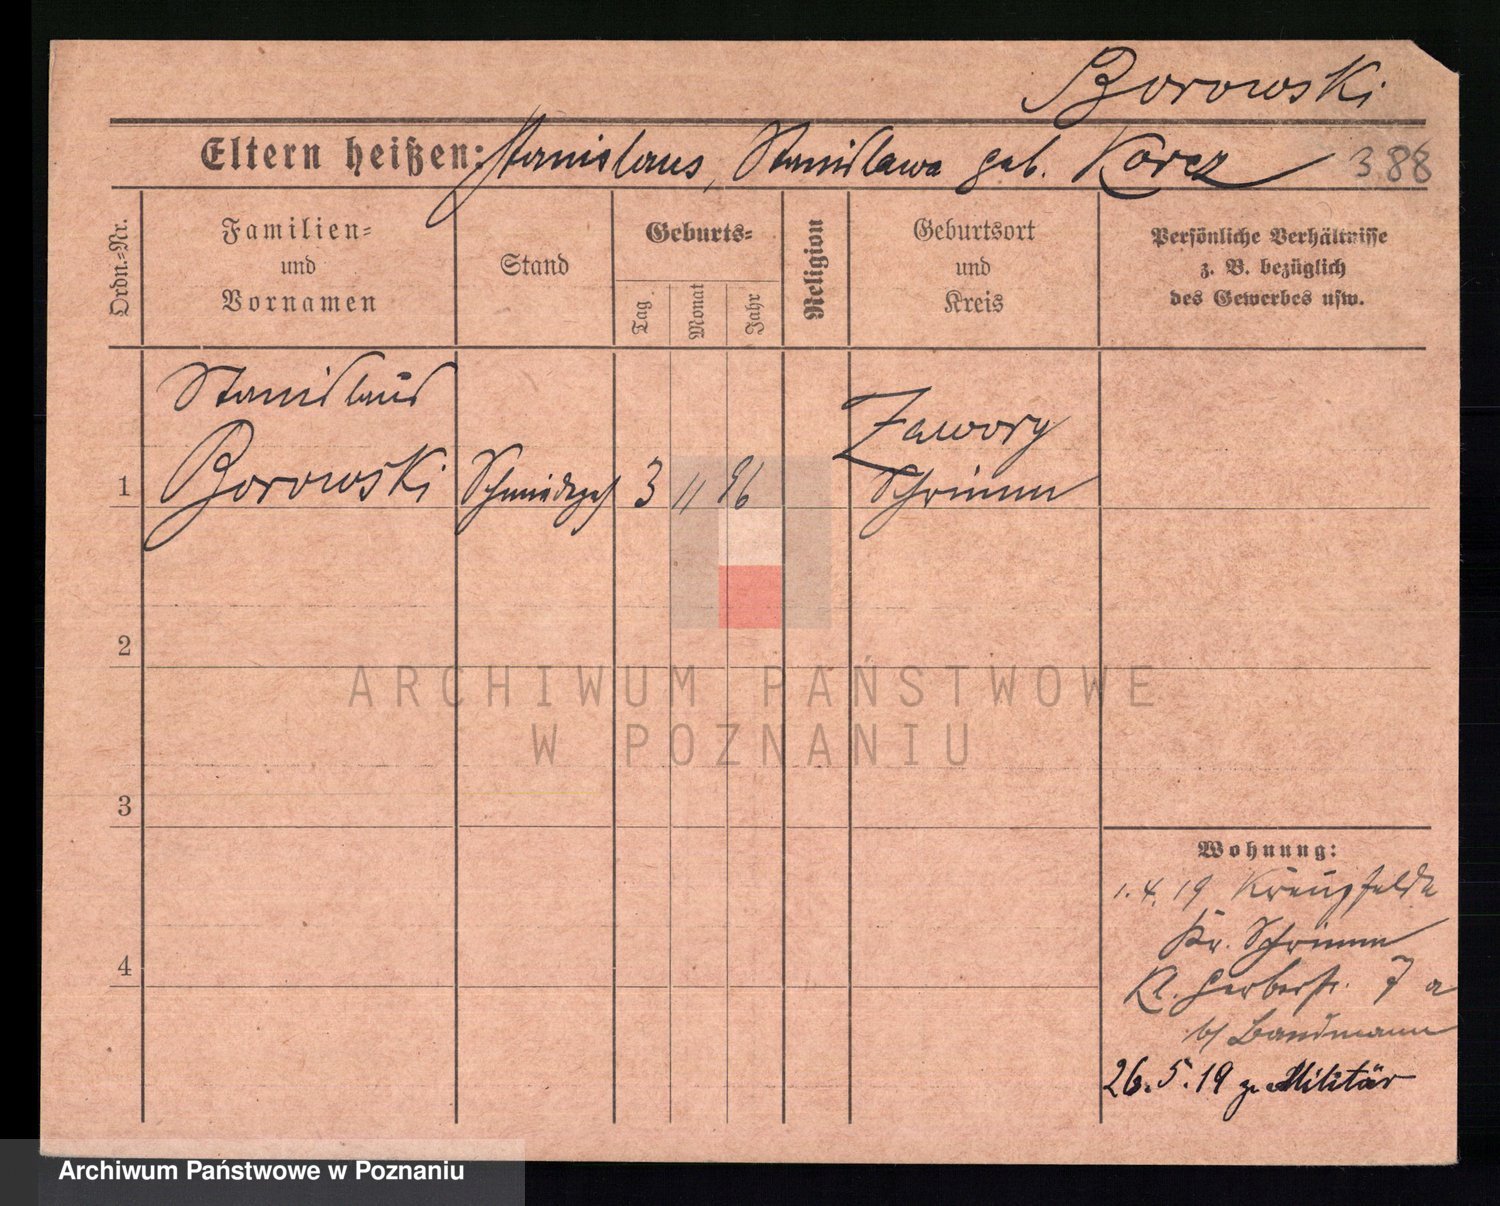 Borowski
Eltern heißen: Stanislaus, Stanislawa geb. Korcz 388
Ordn.-Nr.
Familien-
und
Vornamen
Stand
Geburts-
Tag.
Monat
Jahr
Religion
Geburtsort
und
Kreis
Persönliche Verhältnisse
z. B. bezüglich
des Gewerbes usw.
Stanislaus
Borowski
1 Schmiedeges 3 11 96
Zawory
Schrimm
2
ARCHIWUM PAŃSTWOWE
W POZNANIU
3
Wohnung:
1.4.19 Kreuzfelde
Kr. Schrimm
4
Kl. Gerberstr. 7 a
b/ Bandmann
26.5.19 z. Militär
Archiwum Państwowe w Poznaniu